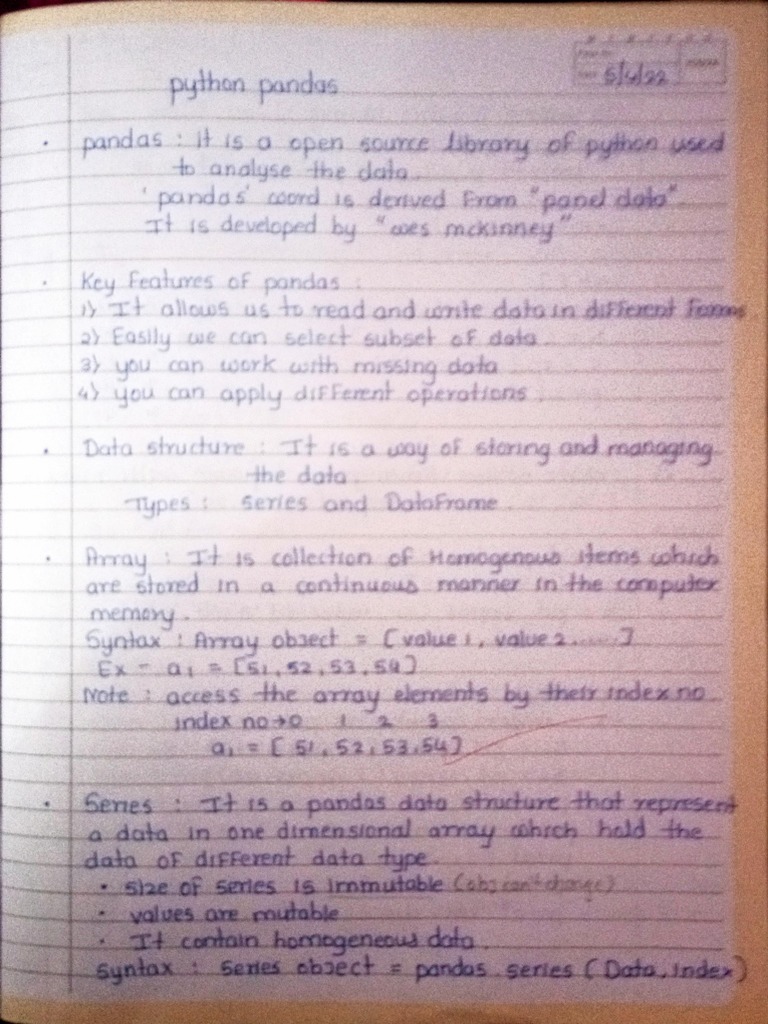 5/4/22
python pandas
• pandas : it is a open source library of python used
to analyse the data.
'pandas' word is derived From "panel data"
It is developed by "wes mckinney"
• Key Features of pandas :
1) It allows us to read and write data in different
2) Easily we can select subset of data.
3) you can work with missing data
4) you can apply different operations.
• Data structure : It is a way of storing and managing
the data.
Types : series and DataFrame
• Array : It is collection of Homogenous items which
are stored in a continuous manner in the computer
memory.
Syntax : Array object = [value 1, value 2......]
Ex - a1 = [51, 52, 53, 54]
Note : access the array elements by their index no.
index no → 0 1 2 3
a1 = [ 51, 52, 53, 54]
• Series : It is a pandas data structure that represent
a data in one dimensional array which hold the
data of different data type.
• size of series is immutable (obj can't change)
• values are mutable
• It contain homogeneous data.
Syntax : Series object = pandas series (Data, index)